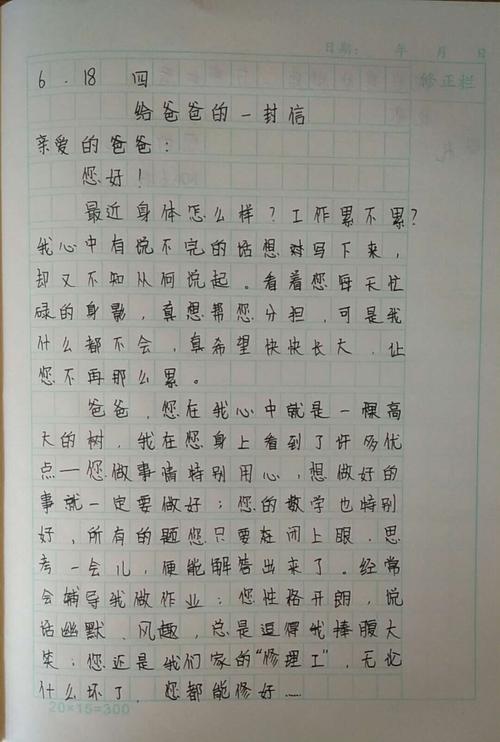 日期: 年 月 日
修正栏
6.18 四
给爸爸的一封信
亲爱的爸爸:
您好!
最近身体怎么样?工作累不累?
我心中有说不完的话想对写下来,
却又不知从何说起。看着您每天忙
碌的身影,真想帮您分担,可是我
什么都不会,真希望快快长大,让
您不再那么累。
爸爸,您在我心中就是一棵高
大的树,我在您身上看到了许多优
点—您做事情特别用心,想做好的
事就一定要做好;您的数学也特别
好,所有的题您只要在闭上眼,思
考一会儿,便能解答出来了。经常
会辅导我做作业;您性格开朗,说
话幽默、风趣,总是逗得我捧腹大
笑;您还是我们家的“修理工”,无论
什么坏了 您都能修好……
20×15=300